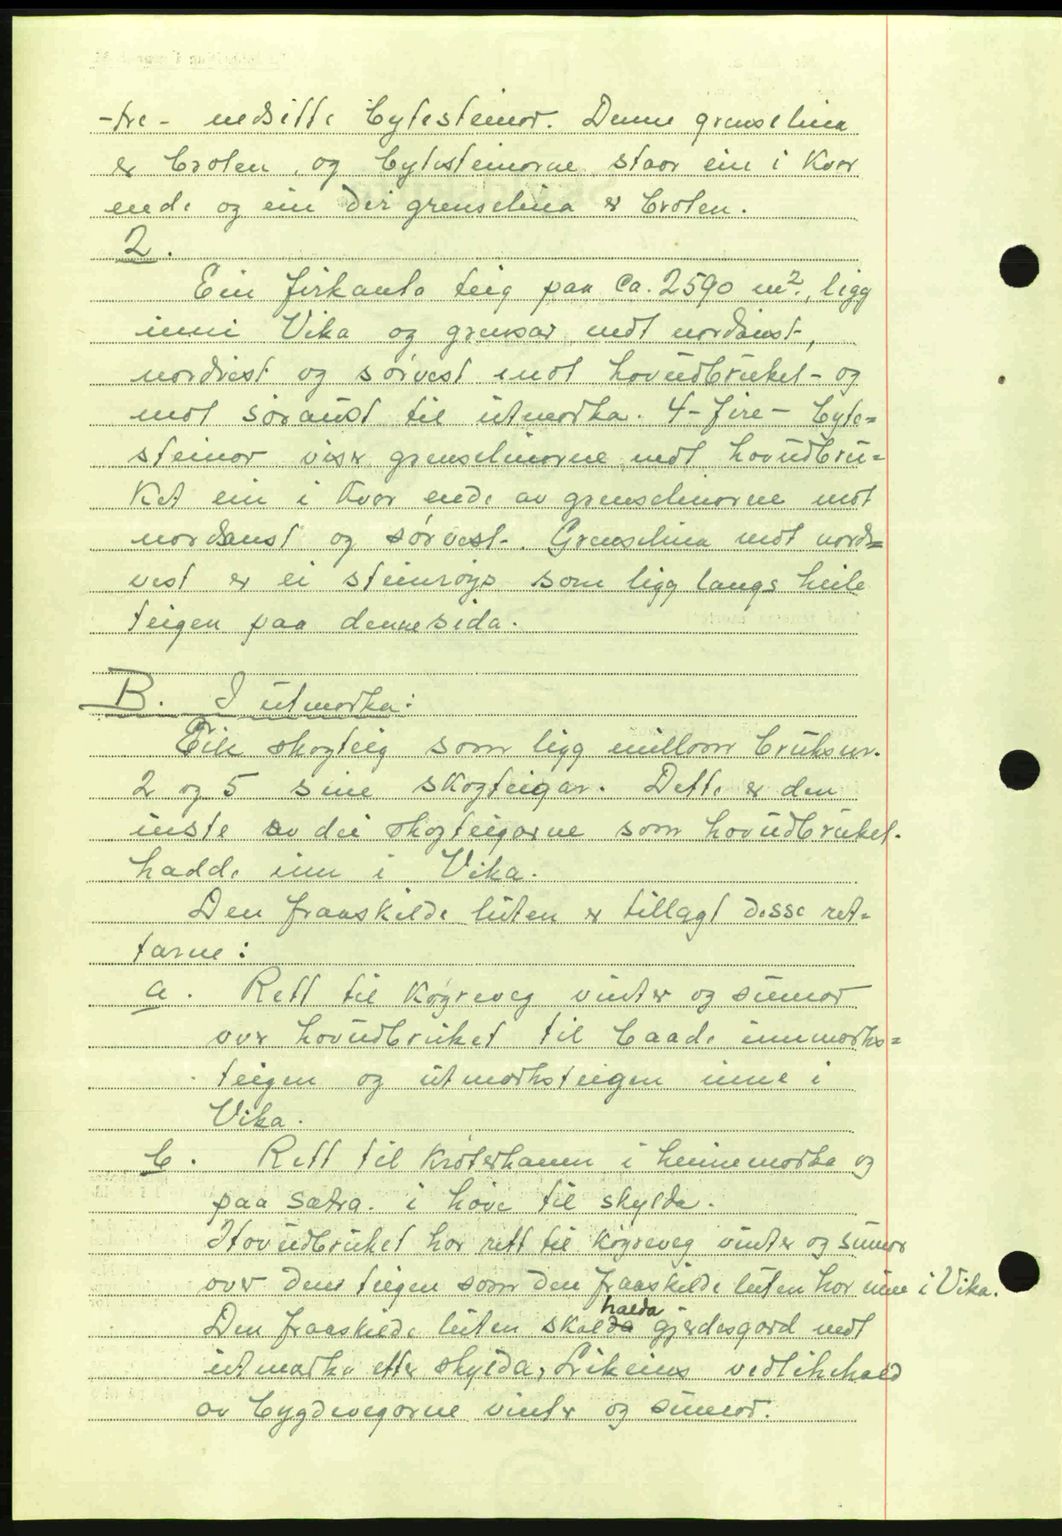 -tre- nedsitte bytesteinor. Denne grenselina
er broten, og bytesteinorne staar ein i kvar
ende og ein der grenselina er broten.
2.
Ein firkanta teig paa ca. 2590 m², ligg
inni Vika og grensar mot nordaust,
nordvest og sørvest mot hovudbruket- og
mot søraust til utmorka. 4-fire- byte=
steinor viser grenselinorne mot hovudbru=
ket ein i kvar ende av grenselinorne mot
nordaust og sørvest-. Grenselina mot nord=
vest er ei steinrøys som ligg langs heile
teigen paa denne sida.
B. I utmorka:
Ein skogteig som ligg millom bruksnr.
2 og 5 sine skogteigar. Dette er den
inste av dei skogteigarne som hovudbruket.
hadde inn i Vika.
Den fraaskilde luten er tillagt desse ret-
tarne:
a. Rett til køyreveg vinter og sumar
over hovudbruket til baade innmorks=
teigen og utmorksteigen inne i
Vika.
b. Rett til krøterhamn i heimemorka og
paa sætra. i høve til skylda.
Hovudbruket har rett til køyreveg vinter og sumar
over den teigen som den fraaskilde luten har inne i Vika.
Den fraaskilde luten skal halda gjerdesgard mot
utmorka etter skylda, Likeins vedlikehald
av bygdevegarne vinter og sumar.